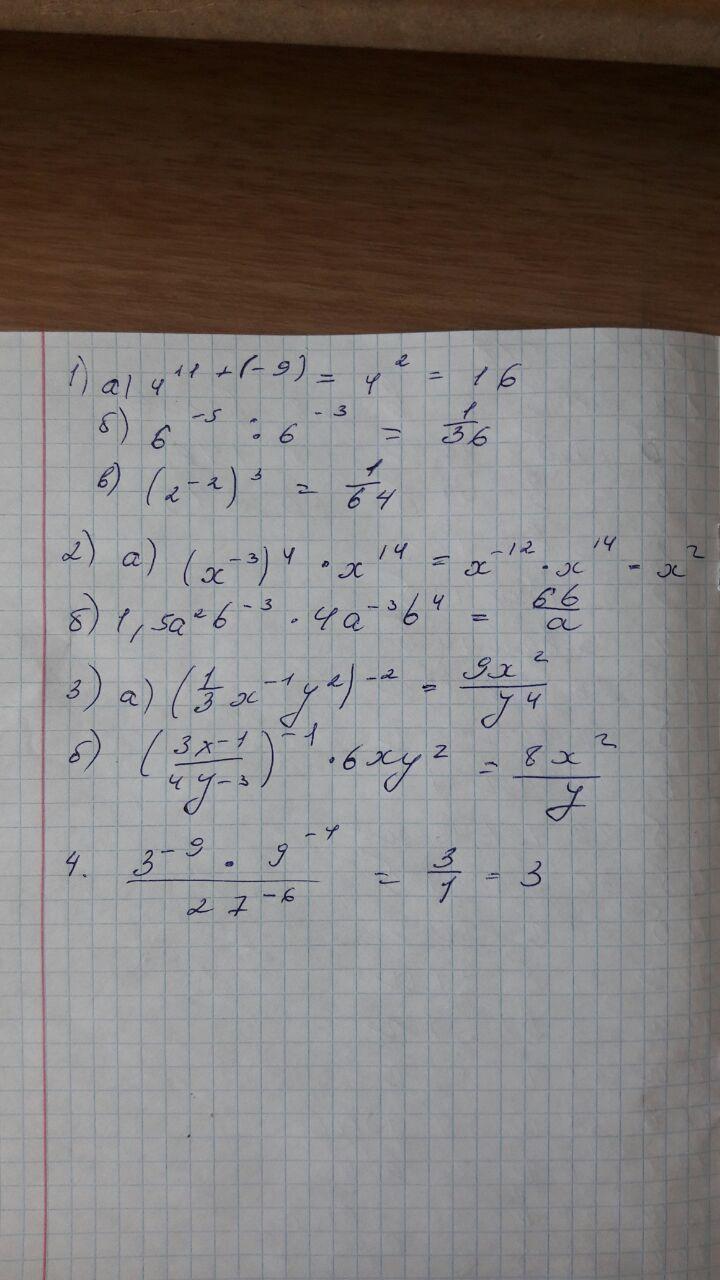 1) а) 4^11+(-9) = 4^2 = 16
б) 6^-5 : 6^-3 = 1/36
в) (2^-2)^3 = 1/64
2) а) (x^-3)^4 · x^14 = x^-12 · x^14 = x^2
б) 1,5a^2b^-3 · 4a^-3b^4 = 6b/a
3) а) (1/3 x^-1 y^2)^-2 = 9x^2/y^4
б) (3x-1/4y-3)^-1 · 6xy^2 = 8x^2/y
4. 3^-9 · 9^-4/27^-6 = 3/1 = 3